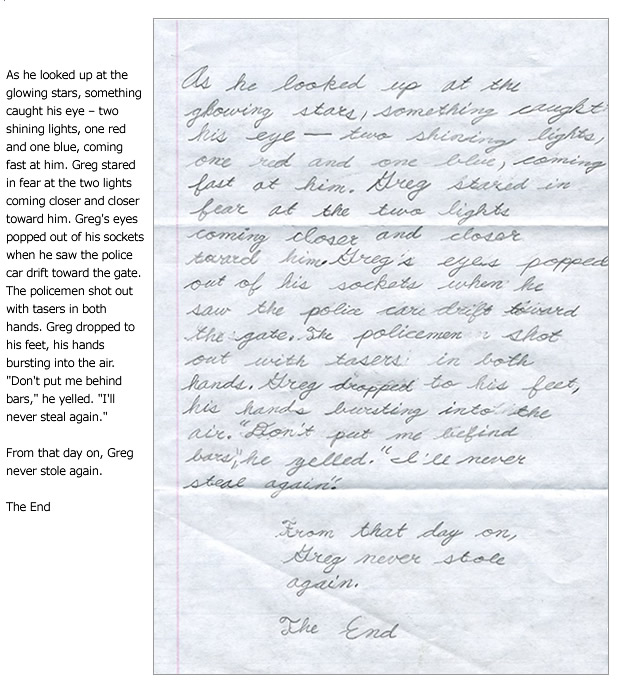 As he looked up at the
glowing stars, something
caught his eye – two
shining lights, one red
and one blue, coming
fast at him. Greg stared
in fear at the two lights
coming closer and closer
toward him. Greg's eyes
popped out of his sockets
when he saw the police
car drift toward the gate.
The policemen shot out
with tasers in both
hands. Greg dropped to
his feet, his hands
bursting into the air.
"Don't put me behind
bars," he yelled. "I'll
never steal again."
From that day on, Greg
never stole again.
The End
As he looked up at the
glowing stars, something caught
his eye — two shining lights,
one red and one blue, coming
fast at him. Greg stared in
fear at the two lights
coming closer and closer
toward him. Greg's eyes popped
out of his sockets when he
saw the police car drift toward
the gate. The policemen shot
out with tasers in both
hands. Greg dropped to his feet,
his hands bursting into the
air. "Don't put me behind
bars," he yelled. "I'll never
steal again".
From that day on,
Greg never stole
again.
The End